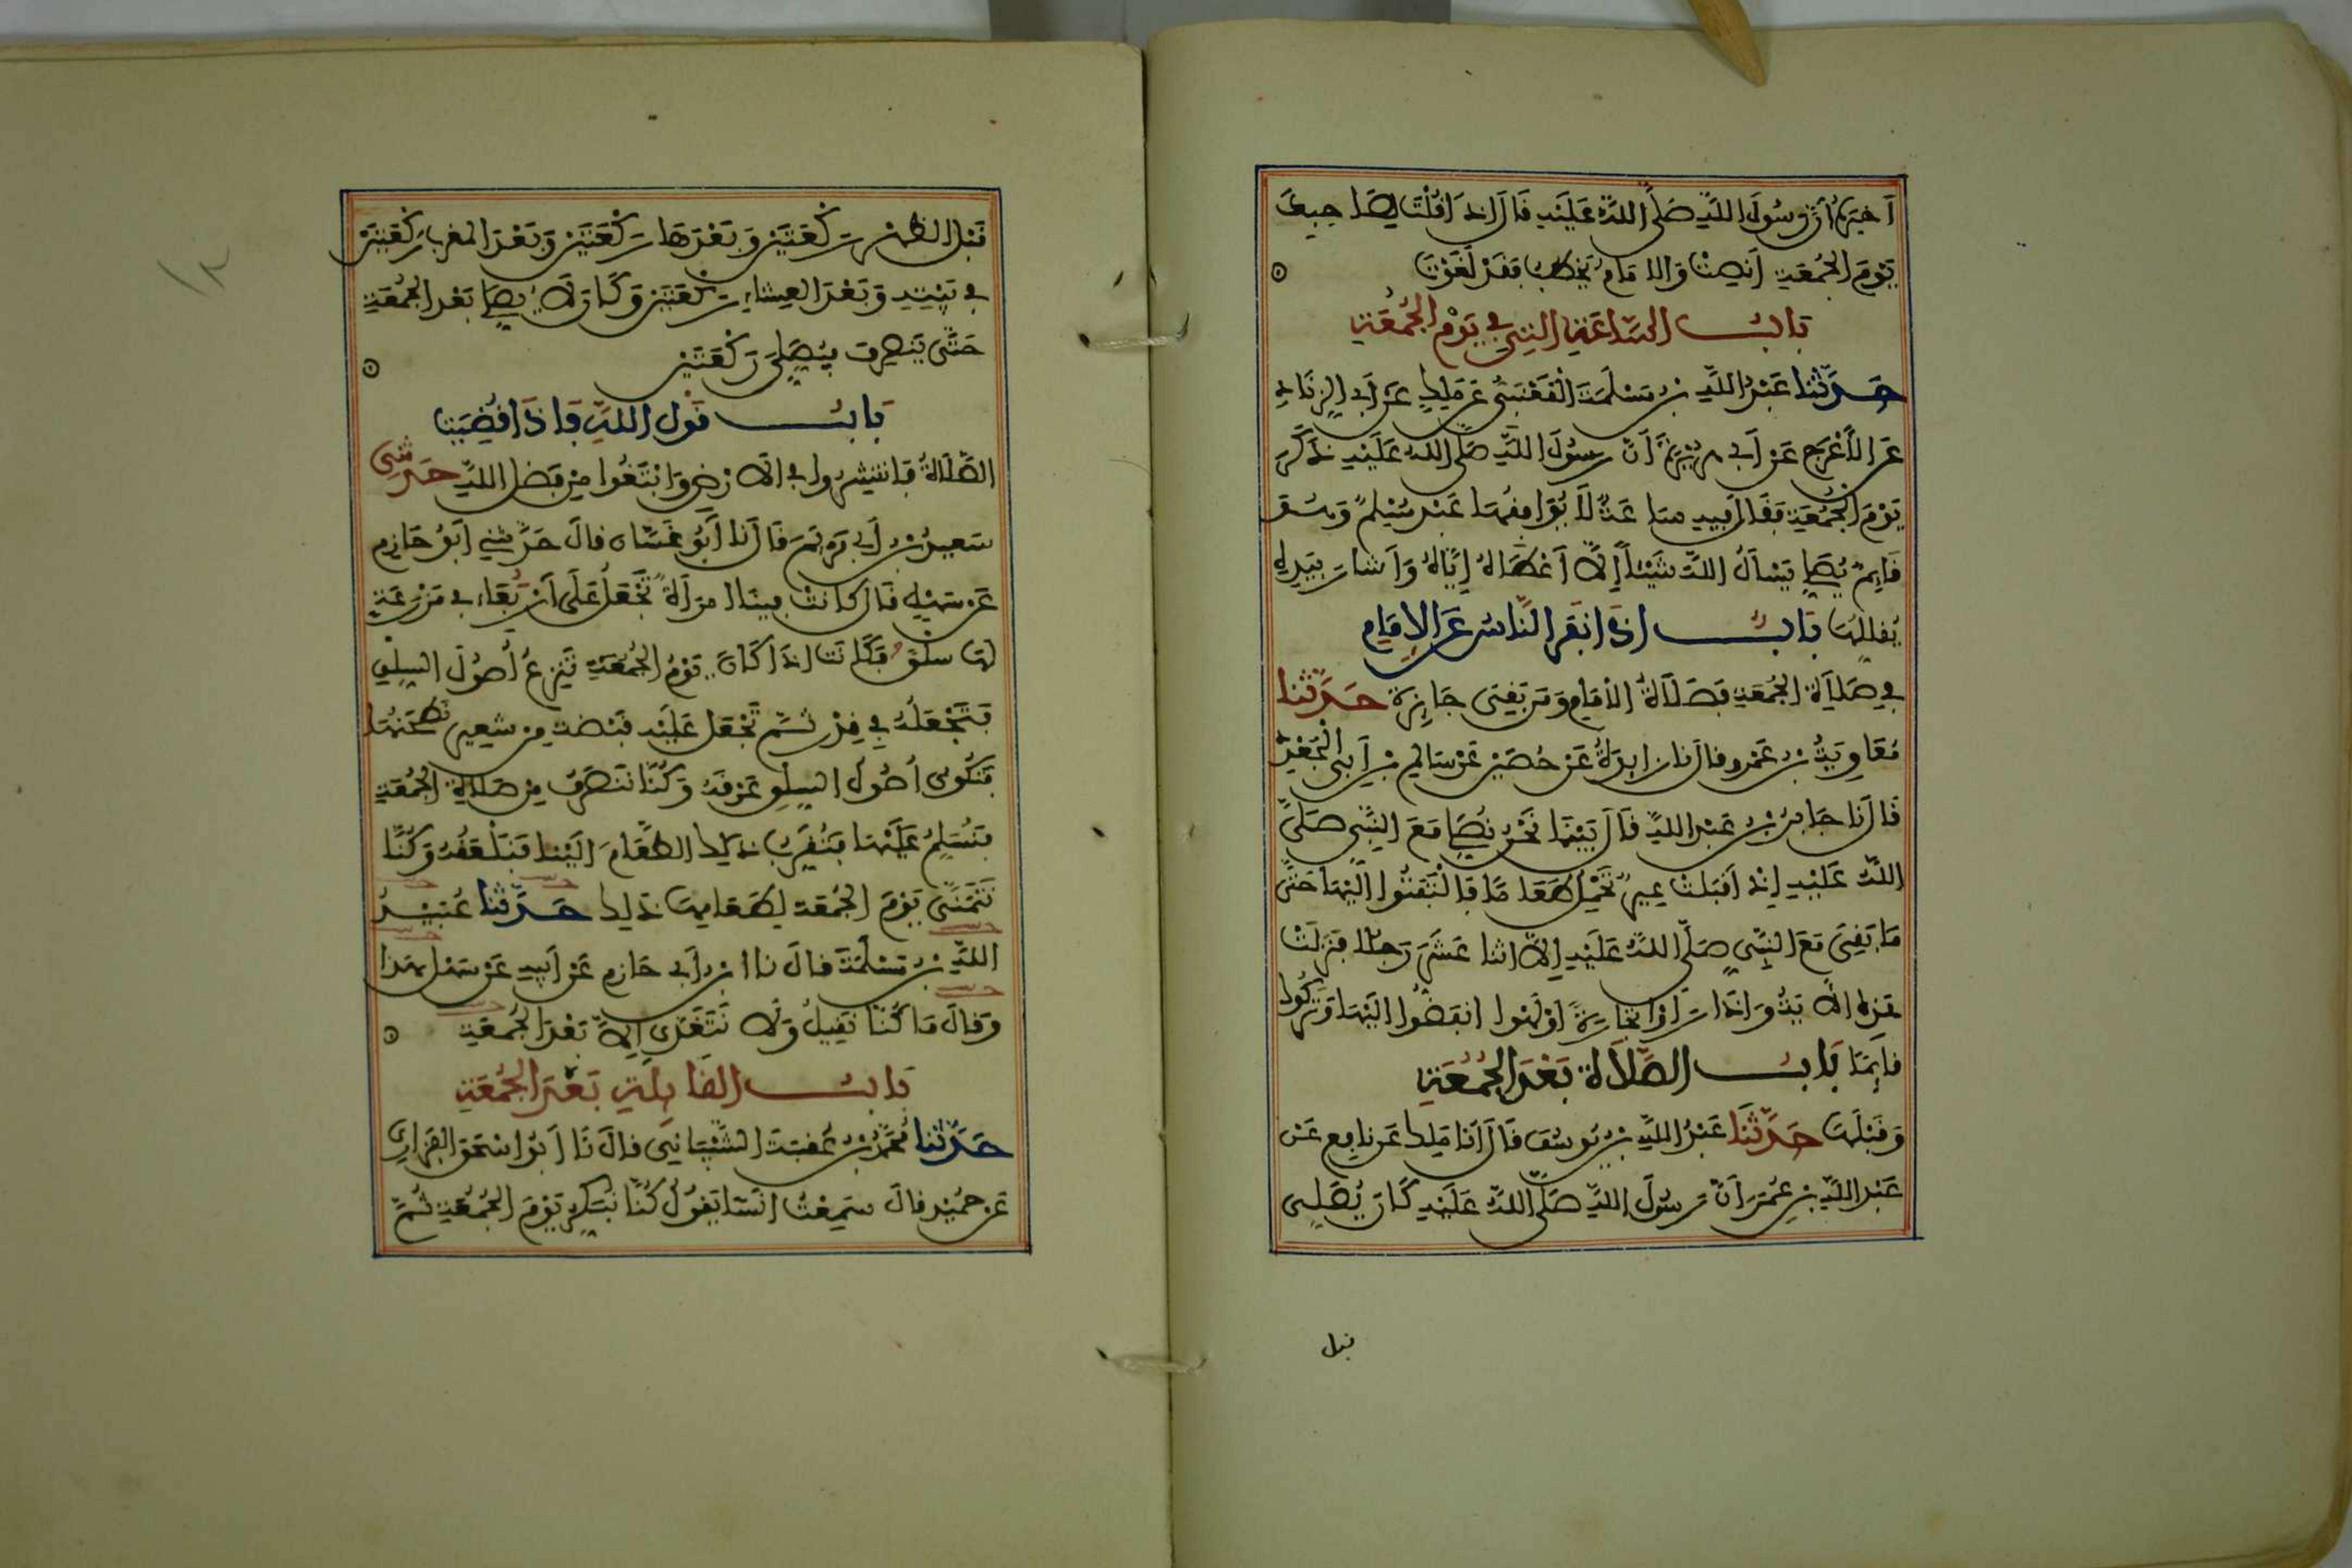 أَخبَرَهُ أَنَّ رسُولَ اللَّهِ صَلَّى اللَّهُ عَلَيْهِ قَالَ إِذَا قُلْتَ لِصَاحِبِكَ
يَوْمَ الجُمُعَةِ أَنصِتْ وَالإمَامُ يَخطُبُ فَقَدْ لَغَوْتَ
بَابُ السَّاعَةِ الَّتِي فِي يَوْمِ الجُمُعَةِ
حَدَّثَنا عَبْدُ اللَّهِ بْنُ مَسْلَمَةَ الْقَعْنَبِيُّ عَن مَالِكٍ عَن أَبِي الزِّنَادِ
عَنِ الأَعْرَجِ عَنْ أَبِي هُرَيْرَةَ أَنَّ رَسُولَ اللَّهِ صَلَّى اللَّهُ عَلَيْهِ ذَكَرَ
يَوْمَ الجُمُعَةِ فَقَالَ فِيهِ سَاعَةٌ لَا يُوَافِقُهَا عَبْدٌ مُسْلِمٌ وَهُوَ
قَائِمٌ يُصَلِّي يَسْأَلُ اللَّهَ شَيْئاً إِلَّا أَعْطَاهُ إِيَّاهُ وَأَشَارَ بِيَدِهِ
يُقَلِّلُهَا بَابُ إِذَا نَفَرَ النَّاسُ عَنِ الإِمَامِ
فِي صَلَاةِ الجُمُعَةِ فَصَلَاةُ الإمَامِ وَمَن بَقِيَ جَائِزَةٌ حَدَّثَنا
مُعَاوِيَةُ بْنُ عَمْرٍو قالَ نا زَائِدَةُ عَنْ حُصَيْنٍ عَنْ سَالِمِ بْنِ أَبِي الْجَعْدِ
قَالَ نا جَابِرُ بْنُ عَبْدِ اللَّهِ قَالَ بَيْنَمَا نَحْنُ نُصَلِّي مَعَ النَّبِيِّ صَلَّى
اللَّهُ عَلَيْهِ إِذْ أَقْبَلَتْ عِيرٌ تَحْمِلُ طَعَاماً فَالْتَفَتُوا إِلَيْهَا حَتَّى
مَا بَقِيَ مَعَ النَّبِيِّ صَلَّى اللَّهُ عَلَيْهِ إِلَّا اثنا عَشَرَ رَجُلا فَنَزَلَتْ
هَذِهِ الآيَةُ وَإِذَا رَأَوْا تِجَارَةً أَوْ لَهْوا انفَضُّوا إِلَيْهَا وَتَرَكُوكَ
قَائِمًا بَابُ الصَّلَاةِ بَعْدَ الجُمُعَةِ
وَقَبْلَهَا حَدَّثَنَا عَبْدُ اللَّهِ بْنُ يُوسُفَ قَالَ أَنَا مَالِكٌ عَن نَافِعٍ عَنْ
عَبْدِ اللَّهِ بْنِ عُمَرَ أَنَّ رَسُولَ اللَّهِ صَلَّى اللَّهُ عَلَيْهِ كَانَ يُصَلِّي
قبل
قَبْلَ الظهْرِ رَكْعَتَيْنِ وَبَعْدَهَا رَكْعَتَيْنِ وَبَعْدَ المغرِبِ رَكْعَتَيْنِ
فِي بَيْتِهِ وَبَعْدَ العِشَاءِ رَكْعَتَيْنِ وَكَانَ لَا يُصَلِّي بَعْدَ الجُمُعَةِ
حَتَّى يَنصَرِفَ فَيُصَلِّيَ رَكْعَتَيْنِ
بَابُ قَوْلِ اللَّهِ فَإِذَا قُضِيَتِ
الصَّلَاةُ فَانتَشِرُوا فِي الأَرْضِ وَابْتَغُوا مِنْ فَضْلِ اللَّهِ حَدَّثَنِي
سَعِيدُ بْنُ أَبِي مَرْيَمَ قَالَ نَا أَبُو غَسَّانَ قالَ حَدَّثَنِي أَبُو حَازِمٍ
عَنْ سَهْلٍ قَالَ كَانَتْ فِينَا امرَأَةٌ تَجْعَلُ عَلَى أَرْبِعَاءَ فِي مَزْرَعَةٍ
لَهَا سِلْقٌ فَكَانَت إِذَا كَانَ يَوْمُ الجُمُعَةِ تَنزِعُ أُصُولَ السِّلْقِ
فَتَجْعَلُهُ فِي قِدْرٍ ثُمَّ تَجْعَلُ عَلَيْهِ قَبْضَةً مِنْ شَعِيرٍ تَطْحَنُهَا
فَتَكُونُ أُصُولُ السِّلْقِ عَرْقَهُ وَكُنَّا نَنصَرِفُ مِنْ صَلَاةِ الجُمُعَةِ
فَنُسَلِّمُ عَلَيْهَا فَتُقَرِّبُ ذَلِكَ الطَّعَامَ إِلَيْنَا فَنَلْعَقُهُ وَكُنَّا
نَتَمَنَّى يَوْمَ الجُمُعَةِ لِطَعَامِهَا ذَلِكَ حَدَّثَنا عُبَيْدُ
اللَّهِ بْنُ مَسْلَمَةَ قالَ نا ابْنُ أَبِي حَازِمٍ عَنْ أَبِيهِ عَنْ سَهْلٍ بهَذَا
وَقَالَ مَا كُنَّا نَقِيلُ وَلَا نَتَغَدَّى إِلَّا بَعْدَ الجُمُعَةِ
بَابُ القَائِلَةِ بَعْدَ الجُمُعَةِ
حَدَّثَنا مُحَمَّدُ بْنُ عُقْبَةَ الشَّيْبَانِيُّ قالَ نَا أَبُو إِسْحَقَ الفَزَارِيُّ
عَن حُمَيْدٍ قالَ سَمِعْتُ أَنَسًا يَقُولُ كُنَّا نُبَكِّرُ يَوْمَ الجُمُعَةِ ثُمَّ